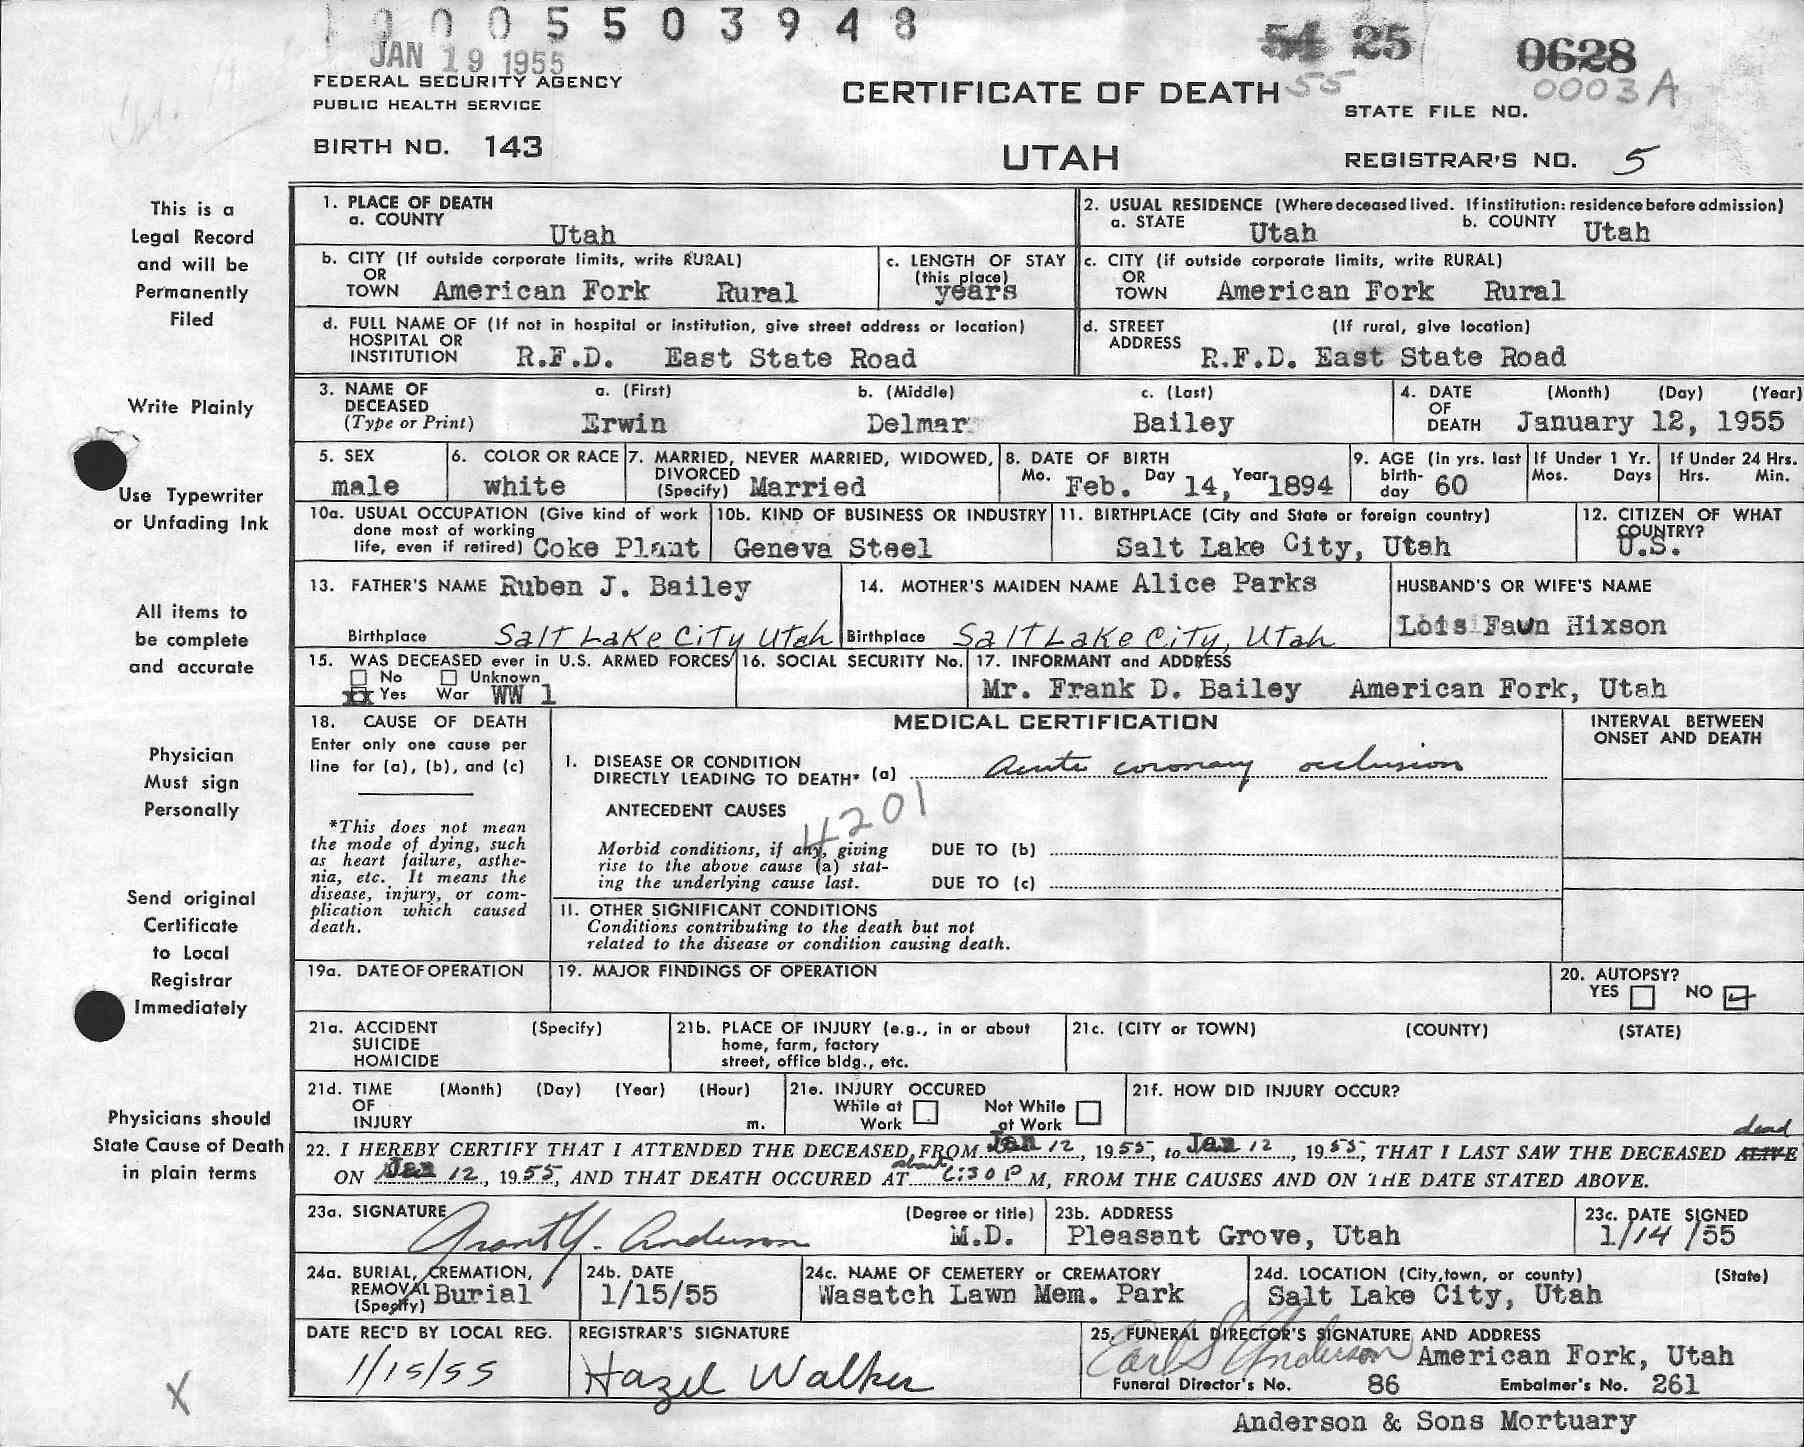 1 0 0 0 5 5 0 3 9 4 8
JAN 19 1955
54 25 0628
55 0003 A
FEDERAL SECURITY AGENCY
PUBLIC HEALTH SERVICE
CERTIFICATE OF DEATH
STATE FILE NO.
BIRTH NO. 143
UTAH
REGISTRAR'S NO. 5
This is a
Legal Record
and will be
Permanently
Filed
Write Plainly
Use Typewriter
or Unfading Ink
All items to
be complete
and accurate
Physician
Must sign
Personally
Send original
Certificate
to Local
Registrar
Immediately
Physicians should
State Cause of Death
in plain terms
X
1. PLACE OF DEATH
a. COUNTY Utah
2. USUAL RESIDENCE (Where deceased lived. If institution: residence before admission)
a. STATE Utah b. COUNTY Utah
b. CITY (If outside corporate limits, write RURAL)
OR
TOWN American Fork Rural
c. LENGTH OF STAY
(this place)
years
c. CITY (if outside corporate limits, write RURAL)
OR
TOWN American Fork Rural
d. FULL NAME OF (If not in hospital or institution, give street address or location)
HOSPITAL OR
INSTITUTION R.F.D. East State Road
d. STREET (If rural, give location)
ADDRESS R.F.D. East State Road
3. NAME OF a. (First) b. (Middle) c. (Last)
DECEASED
(Type or Print) Erwin Delmar Bailey
4. DATE (Month) (Day) (Year)
OF
DEATH January 12, 1955
5. SEX
male
6. COLOR OR RACE
white
7. MARRIED, NEVER MARRIED, WIDOWED,
DIVORCED
(Specify) Married
8. DATE OF BIRTH
Mo. Feb. Day 14, Year 1894
9. AGE (in yrs. last
birth-
day 60
If Under 1 Yr.
Mos. Days
If Under 24 Hrs.
Hrs. Min.
10a. USUAL OCCUPATION (Give kind of work
done most of working
life, even if retired) Coke Plant
10b. KIND OF BUSINESS OR INDUSTRY
Geneva Steel
11. BIRTHPLACE (City and State or foreign country)
Salt Lake City, Utah
12. CITIZEN OF WHAT
COUNTRY?
U.S.
13. FATHER'S NAME Ruben J. Bailey
Birthplace Salt Lake City Utah
14. MOTHER'S MAIDEN NAME Alice Parks
Birthplace Salt Lake City, Utah
HUSBAND'S OR WIFE'S NAME
Lois Faun Hixson
15. WAS DECEASED ever in U.S. ARMED FORCES
No Unknown
xx Yes War WW 1
16. SOCIAL SECURITY No.
17. INFORMANT and ADDRESS
Mr. Frank D. Bailey American Fork, Utah
18. CAUSE OF DEATH
Enter only one cause per
line for (a), (b), and (c)
*This does not mean
the mode of dying, such
as heart failure, asthe-
nia, etc. It means the
disease, injury, or com-
plication which caused
death.
MEDICAL CERTIFICATION
INTERVAL BETWEEN
ONSET AND DEATH
I. DISEASE OR CONDITION
DIRECTLY LEADING TO DEATH* (a) Acute coronary occlusion
ANTECEDENT CAUSES
4201
Morbid conditions, if any, giving
rise to the above cause (a) stat-
ing the underlying cause last.
DUE TO (b)
DUE TO (c)
11. OTHER SIGNIFICANT CONDITIONS
Conditions contributing to the death but not
related to the disease or condition causing death.
19a. DATE OF OPERATION
19. MAJOR FINDINGS OF OPERATION
20. AUTOPSY?
YES NO ✓
21a. ACCIDENT (Specify)
SUICIDE
HOMICIDE
21b. PLACE OF INJURY (e.g., in or about
home, farm, factory
street, office bldg., etc.
21c. (CITY or TOWN) (COUNTY) (STATE)
21d. TIME (Month) (Day) (Year) (Hour)
OF
INJURY m.
21e. INJURY OCCURED
While at Not While
Work at Work
21f. HOW DID INJURY OCCUR?
dead
22. I HEREBY CERTIFY THAT I ATTENDED THE DECEASED FROM Jan 12, 1955, to Jan 12, 1955, THAT I LAST SAW THE DECEASED ALIVE
about
ON Jan 12, 1955, AND THAT DEATH OCCURED AT 6:30 P M, FROM THE CAUSES AND ON THE DATE STATED ABOVE.
23a. SIGNATURE (Degree or title)
Grant Y. Anderson M.D.
23b. ADDRESS
Pleasant Grove, Utah
23c. DATE SIGNED
1/14/55
24a. BURIAL, CREMATION,
REMOVAL
(Specify) Burial
24b. DATE
1/15/55
24c. NAME OF CEMETERY or CREMATORY
Wasatch Lawn Mem. Park
24d. LOCATION (City, town, or county) (State)
Salt Lake City, Utah
DATE REC'D BY LOCAL REG.
1/15/55
REGISTRAR'S SIGNATURE
Hazel Walker
25. FUNERAL DIRECTOR'S SIGNATURE AND ADDRESS
Earl S Anderson American Fork, Utah
Funeral Director's No. 86 Embalmer's No. 261
Anderson & Sons Mortuary